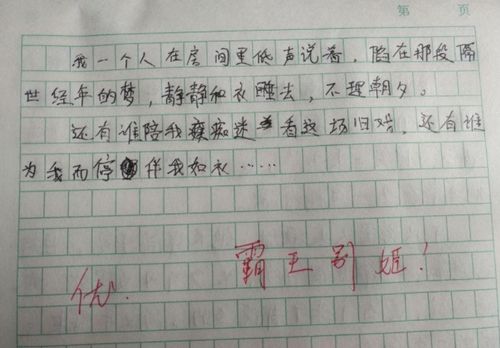 第 页
我一个人在房间里低声说着，陷在那段隔
世经年的梦，静静和衣睡去，不理朝夕。
还有谁陪我痴迷看这场旧戏，还有谁
为我而停伴我如衣……
霸王别姬！
优.